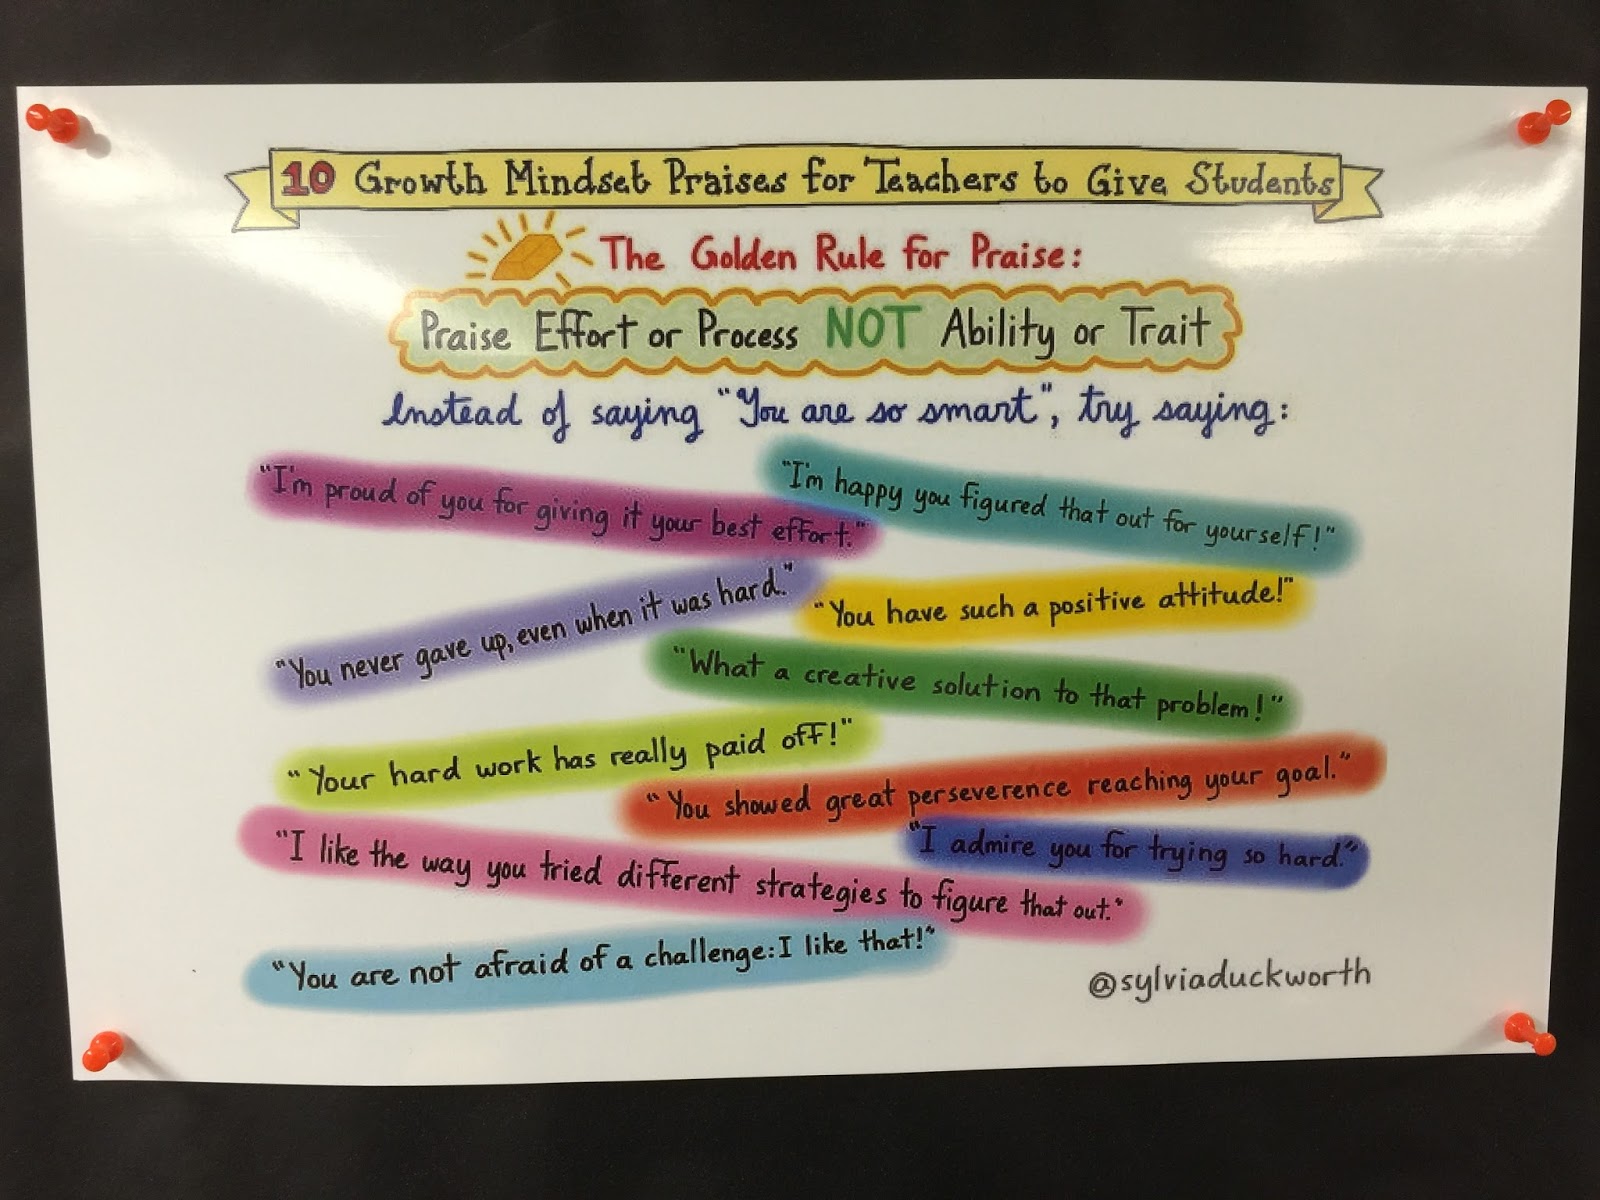 10 Growth Mindset Praises for Teachers to Give Students
The Golden Rule for Praise:
Praise Effort or Process NOT Ability or Trait
Instead of saying "You are so smart", try saying:
"I'm proud of you for giving it your best effort."
"I'm happy you figured that out for yourself!"
"You never gave up, even when it was hard."
"You have such a positive attitude!"
"What a creative solution to that problem!"
"Your hard work has really paid off!"
"You showed great perseverence reaching your goal."
"I admire you for trying so hard."
"I like the way you tried different strategies to figure that out."
"You are not afraid of a challenge: I like that!"
@sylviaduckworth